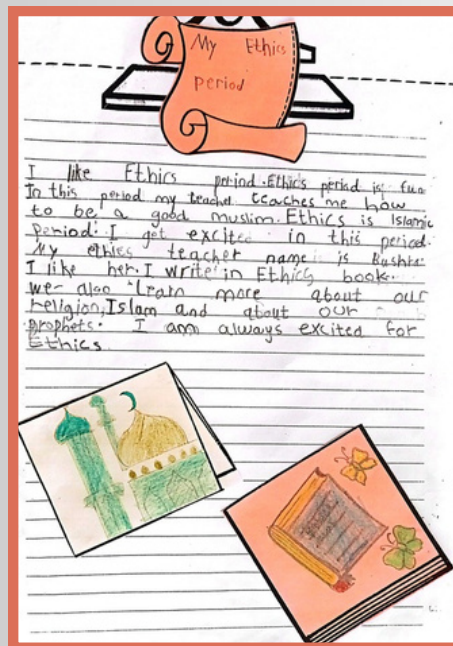 My Ethics
period
I like Ethics period. Ethics period is fun
In this period my teacher teaches me how
to be a good muslim. Ethics is Islamic
period. I get excited in this period.
My ethics teacher name is Bushra.
I like her. I write in Ethics book.
we also learn more about our
religion, Islam and about our
prophets. I am always excited for
Ethics